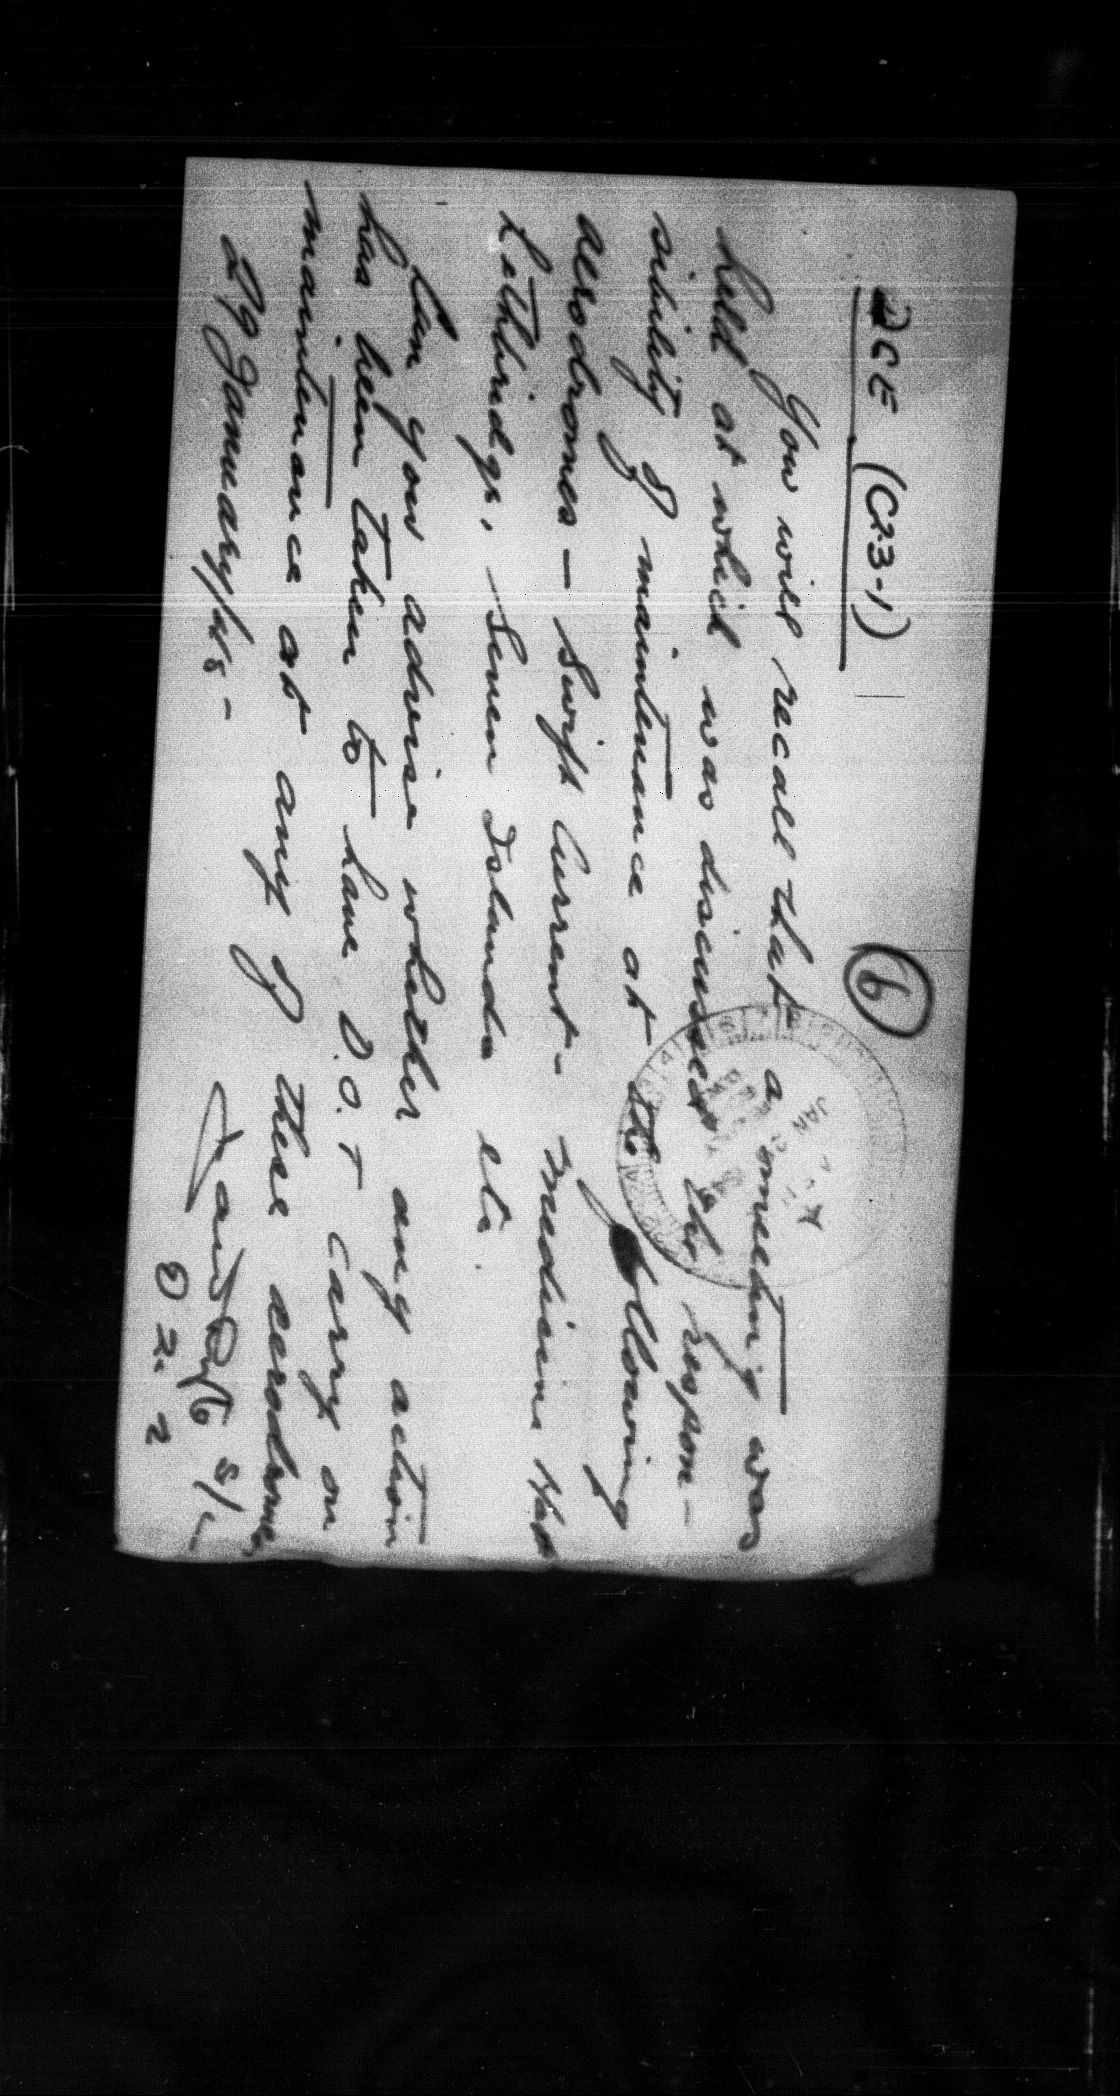 DCE (C23-1)
6
You will recall that a meeting was
held at which was discussed the respon-
sibility of maintenance at the following
aerodromes - Swift Current - Medicine Hat
Lethbridge, - Seven Islands etc.
Can you advise whether any action
has been taken to have D.O.T carry on
maintenance at any of these aerodromes
29 January/48 -
S/L
JAN